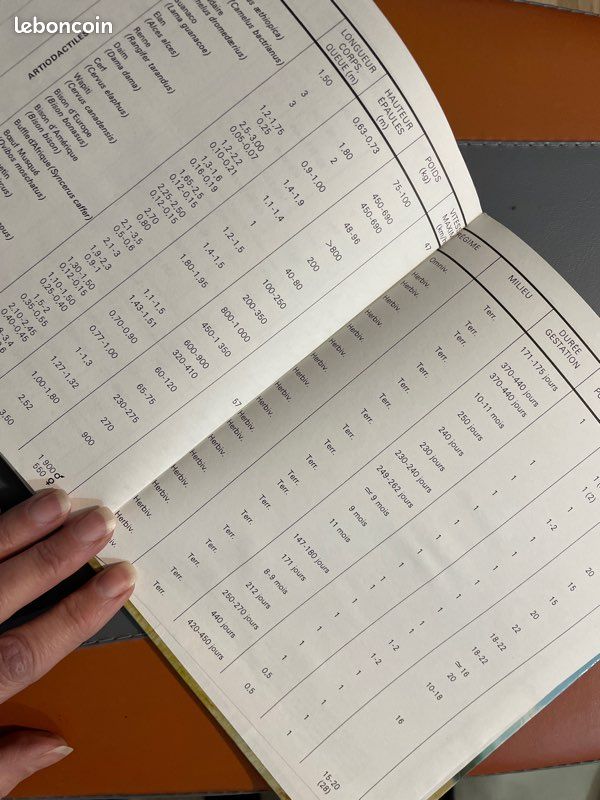 leboncoin
ARTIODACTILE
LONGUEUR
CORPS,
QUEUE (m)
HAUTEUR
ÉPAULES
(m)
POIDS
(kg)
(Camelus bactrianus)
(Lama guanacoe)
Elan
(Alces alces)
Renne
(Rangifer tarandus)
Daim
(Dama dama)
Cerf
(Cervus elaphus)
Wapiti
(Cervus canadensis)
Bison d'Europe
(Bison bonasus)
Bison d'Amérique
(Bison bison)
Buffle d'Afrique (Syncerus caffer)
Bœuf Musqué
(Ovibos moschatus)
1.50
3
3
1.2-1.75
0.25
2.5-3.00
0.05-0.07
1.2-2.2
0.10-0.21
1.3-1.6
0.16-0.19
1.65-2.5
0.12-0.15
2.25-2.50
0.12-0.15
2.70
0.80
2.1-3.5
0.5-0.6
2.1-3
1.9-2.3
0.9-1
1.30-1.50
0.12-0.15
1.10-1.50
0.25-0.40
1.5-2
0.35-0.55
2.10-2.45
0.40-0.45
3.50
0.63-0.73
1.80
2
0.9-1.00
1.4-1.9
1.1-1.4
1
1.2-1.5
1.4-1.5
1.80-1.95
1.1-1.5
1.43-1.51
0.70-0.90
0.77-1.00
1-1.3
1.27-1.32
1.00-1.80
2.52
75-100
450-690
450-690
48-96
>800
200
40-80
100-250
200-350
800-1 000
450-1 350
600-900
320-410
60-120
65-75
230-275
270
900
1 900 ♂
550 ♀
47
57
MILIEU
DURÉE
GESTATION
Omniv.
Herbiv.
Herbiv.
Herbiv.
Herbiv.
Herbiv.
Herbiv.
Herbiv.
Herbiv.
Herbiv.
Herbiv.
Herbiv.
Herbiv.
Herbiv.
Herbiv.
Terr.
Terr.
Terr.
Terr.
Terr.
Terr.
Terr.
Terr.
Terr.
Terr.
Terr.
Terr.
Terr.
Terr.
171-175 jours
370-440 jours
370-440 jours
10-11 mois
250 jours
240 jours
230 jours
230-240 jours
249-262 jours
≃ 9 mois
9 mois
11 mois
147-180 jours
171 jours
8-9 mois
212 jours
250-270 jours
440 jours
420-450 jours
1
1
1 (2)
1
1-2
1
1
1
1
1
1
1
1-2
1-2
1
1
0.5
0.5
1
1
20
15
20
15
22
18-22
18-22
≃ 16
20
10-18
16
15-20
(26)